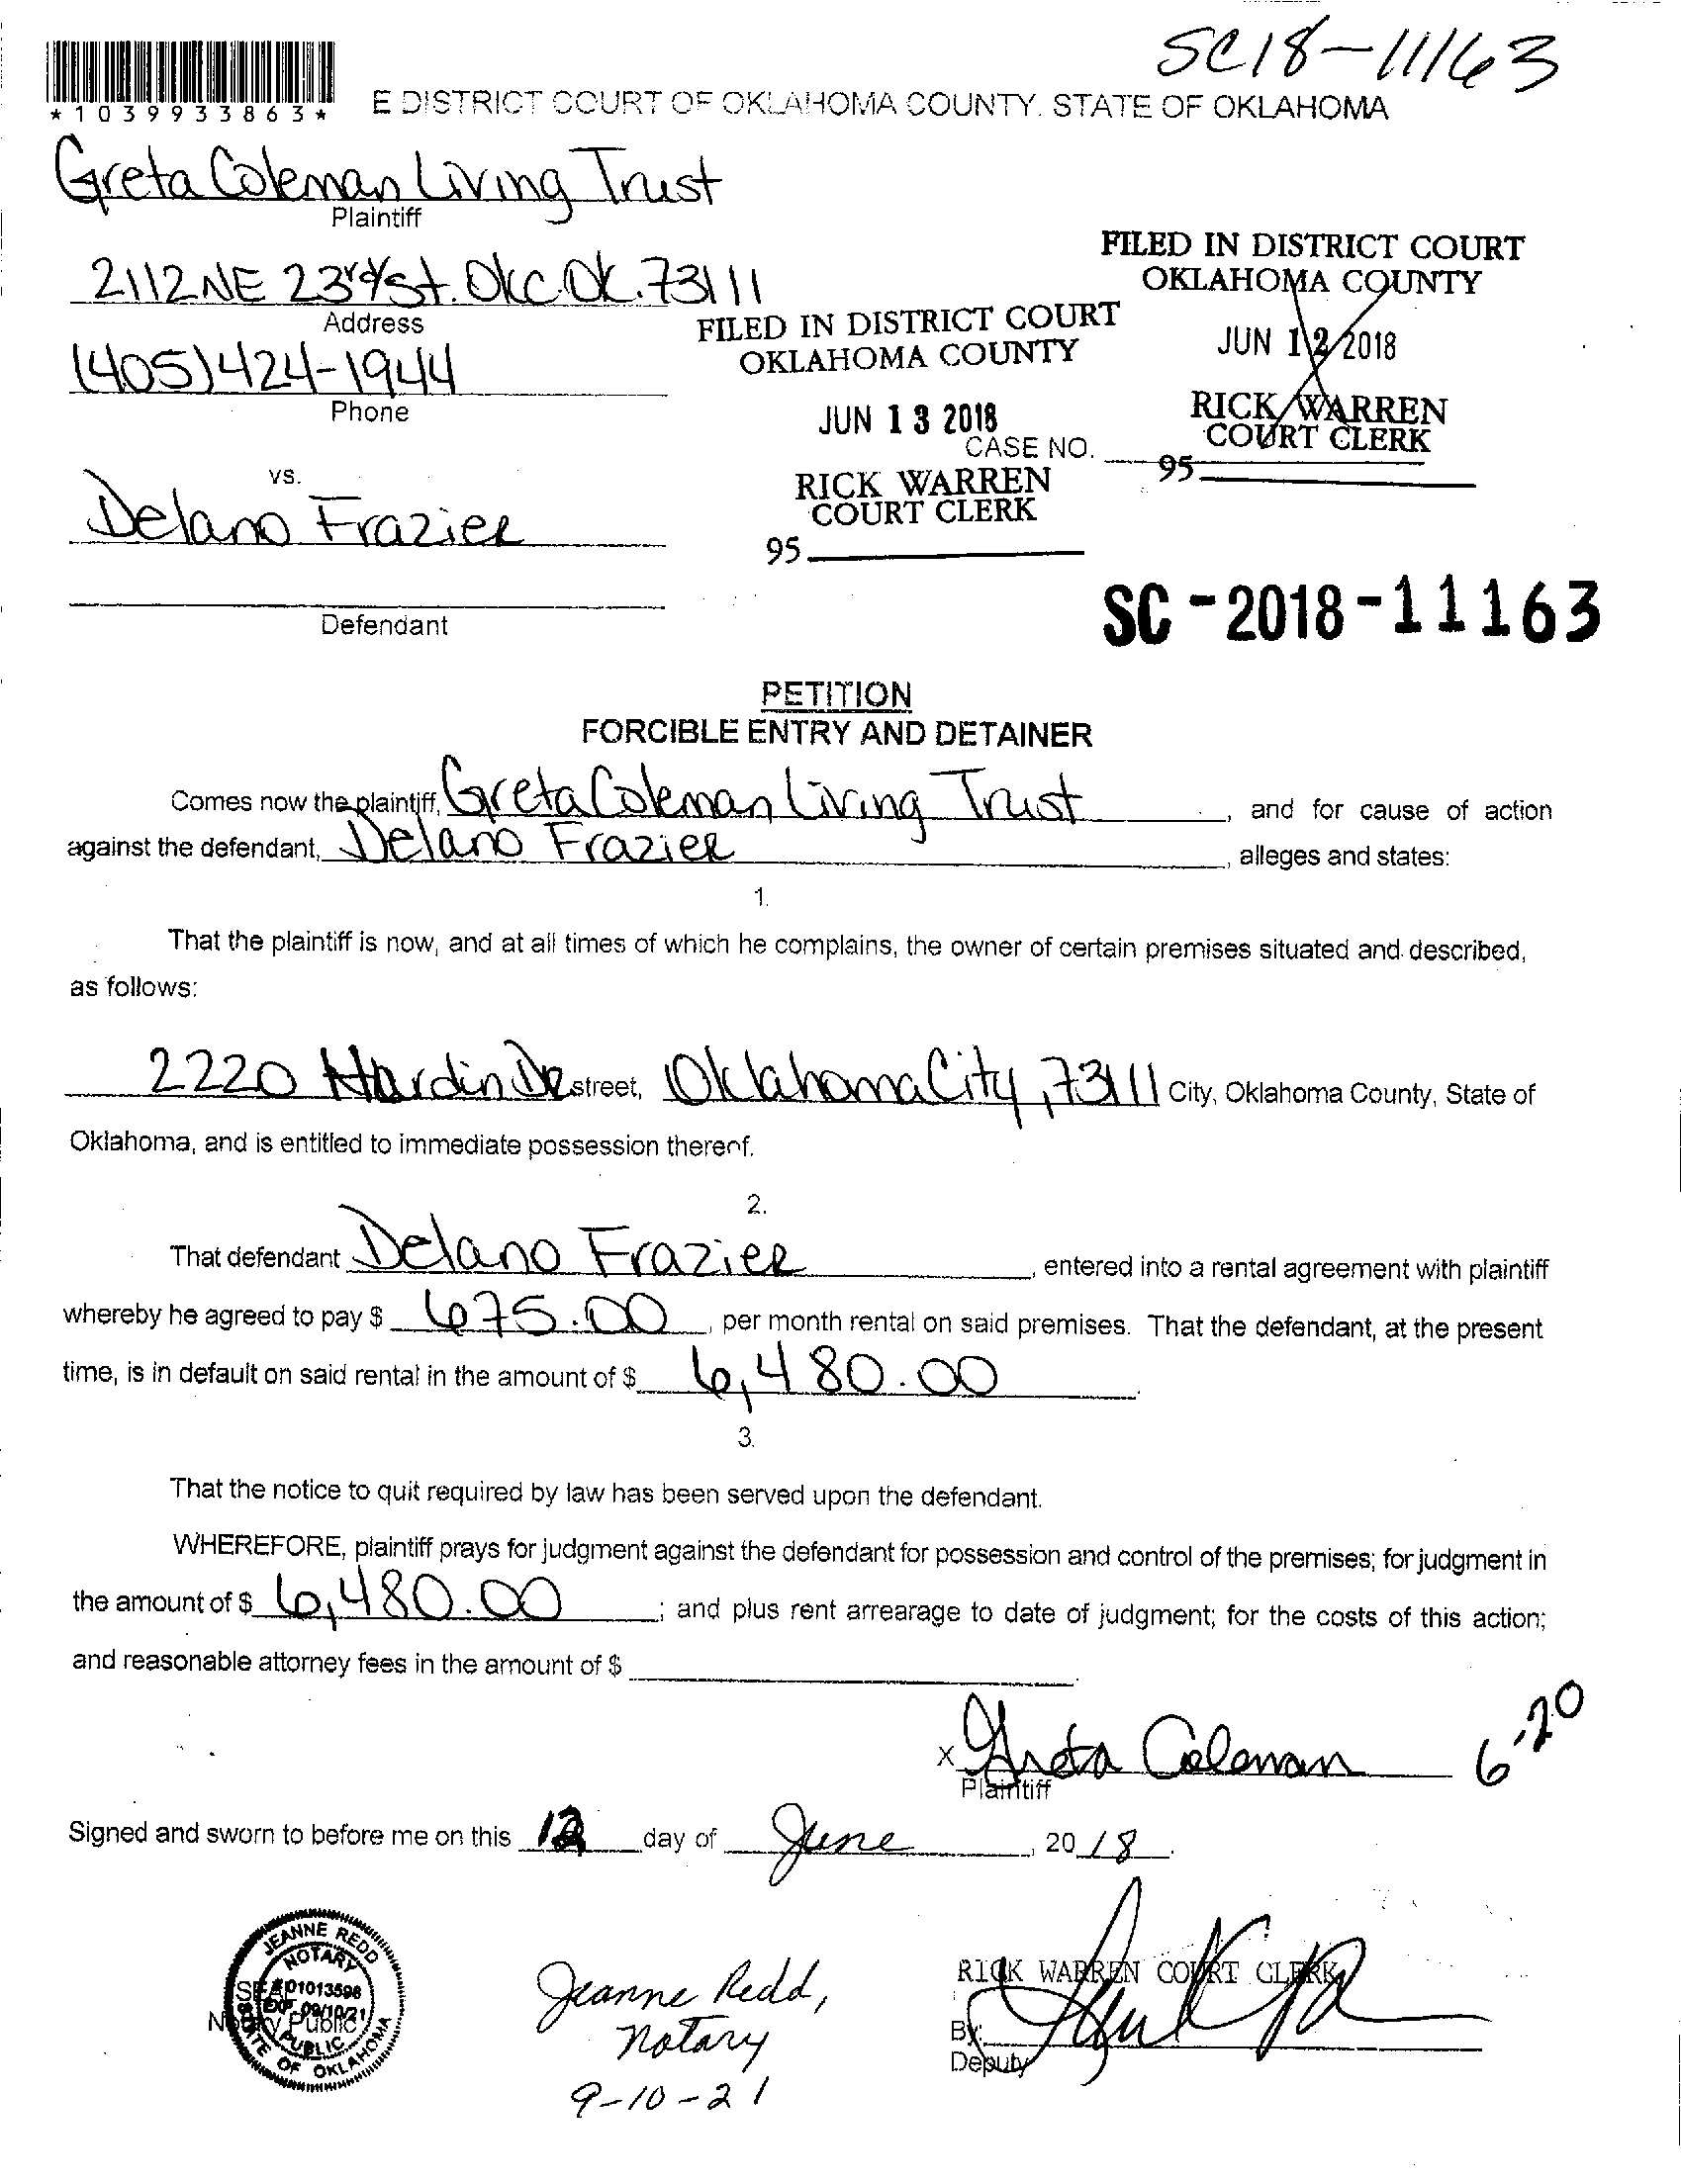 SC18-11163
*1039933863*
E DISTRICT COURT OF OKLAHOMA COUNTY. STATE OF OKLAHOMA
Greta Coleman Living Trust
Plaintiff
2112 NE 23rd St. OKC. OK. 73111
Address
(405) 424-1944
Phone
FILED IN DISTRICT COURT
OKLAHOMA COUNTY
JUN 12 2018
RICK WARREN
COURT CLERK
95
FILED IN DISTRICT COURT
OKLAHOMA COUNTY
JUN 13 2018
CASE NO.
RICK WARREN
COURT CLERK
95
vs.
Delano Frazier
Defendant
SC-2018-11163
PETITION
FORCIBLE ENTRY AND DETAINER
Comes now the plaintiff, Greta Coleman Living Trust, and for cause of action
against the defendant, Delano Frazier, alleges and states:
1.
That the plaintiff is now, and at all times of which he complains, the owner of certain premises situated and described,
as follows:
2220 Hardin Dr street, Oklahoma City, 73111 City, Oklahoma County, State of
Oklahoma, and is entitled to immediate possession thereof.
2.
That defendant Delano Frazier, entered into a rental agreement with plaintiff
whereby he agreed to pay $ 675.00, per month rental on said premises. That the defendant, at the present
time, is in default on said rental in the amount of $ 6,480.00.
3.
That the notice to quit required by law has been served upon the defendant.
WHEREFORE, plaintiff prays for judgment against the defendant for possession and control of the premises; for judgment in
the amount of $ 6,480.00; and plus rent arrearage to date of judgment; for the costs of this action;
and reasonable attorney fees in the amount of $
x Greta Coleman
6-20
Plaintiff
Signed and sworn to before me on this 12 day of June, 2018.
JEANNE REDD
NOTARY
SEAL
#01013598
EXP. 09/10/21
Notary Public
PUBLIC
STATE OF OKLAHOMA
Jeanne Redd,
Notary
9-10-21
RICK WARREN COURT CLERK
By:
Deputy